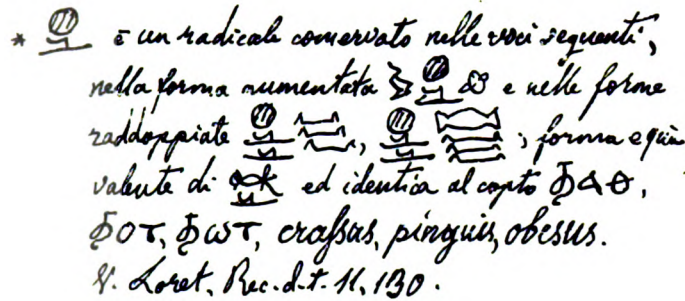 * è un radicale conservato nelle voci seguenti,
nella forma aumentata e nelle forme
raddoppiate , ; forma equi
valente di ed identica al copto
crassus, pinguis, obesus.
V. Loret, Rec. d. t. 11, 130.